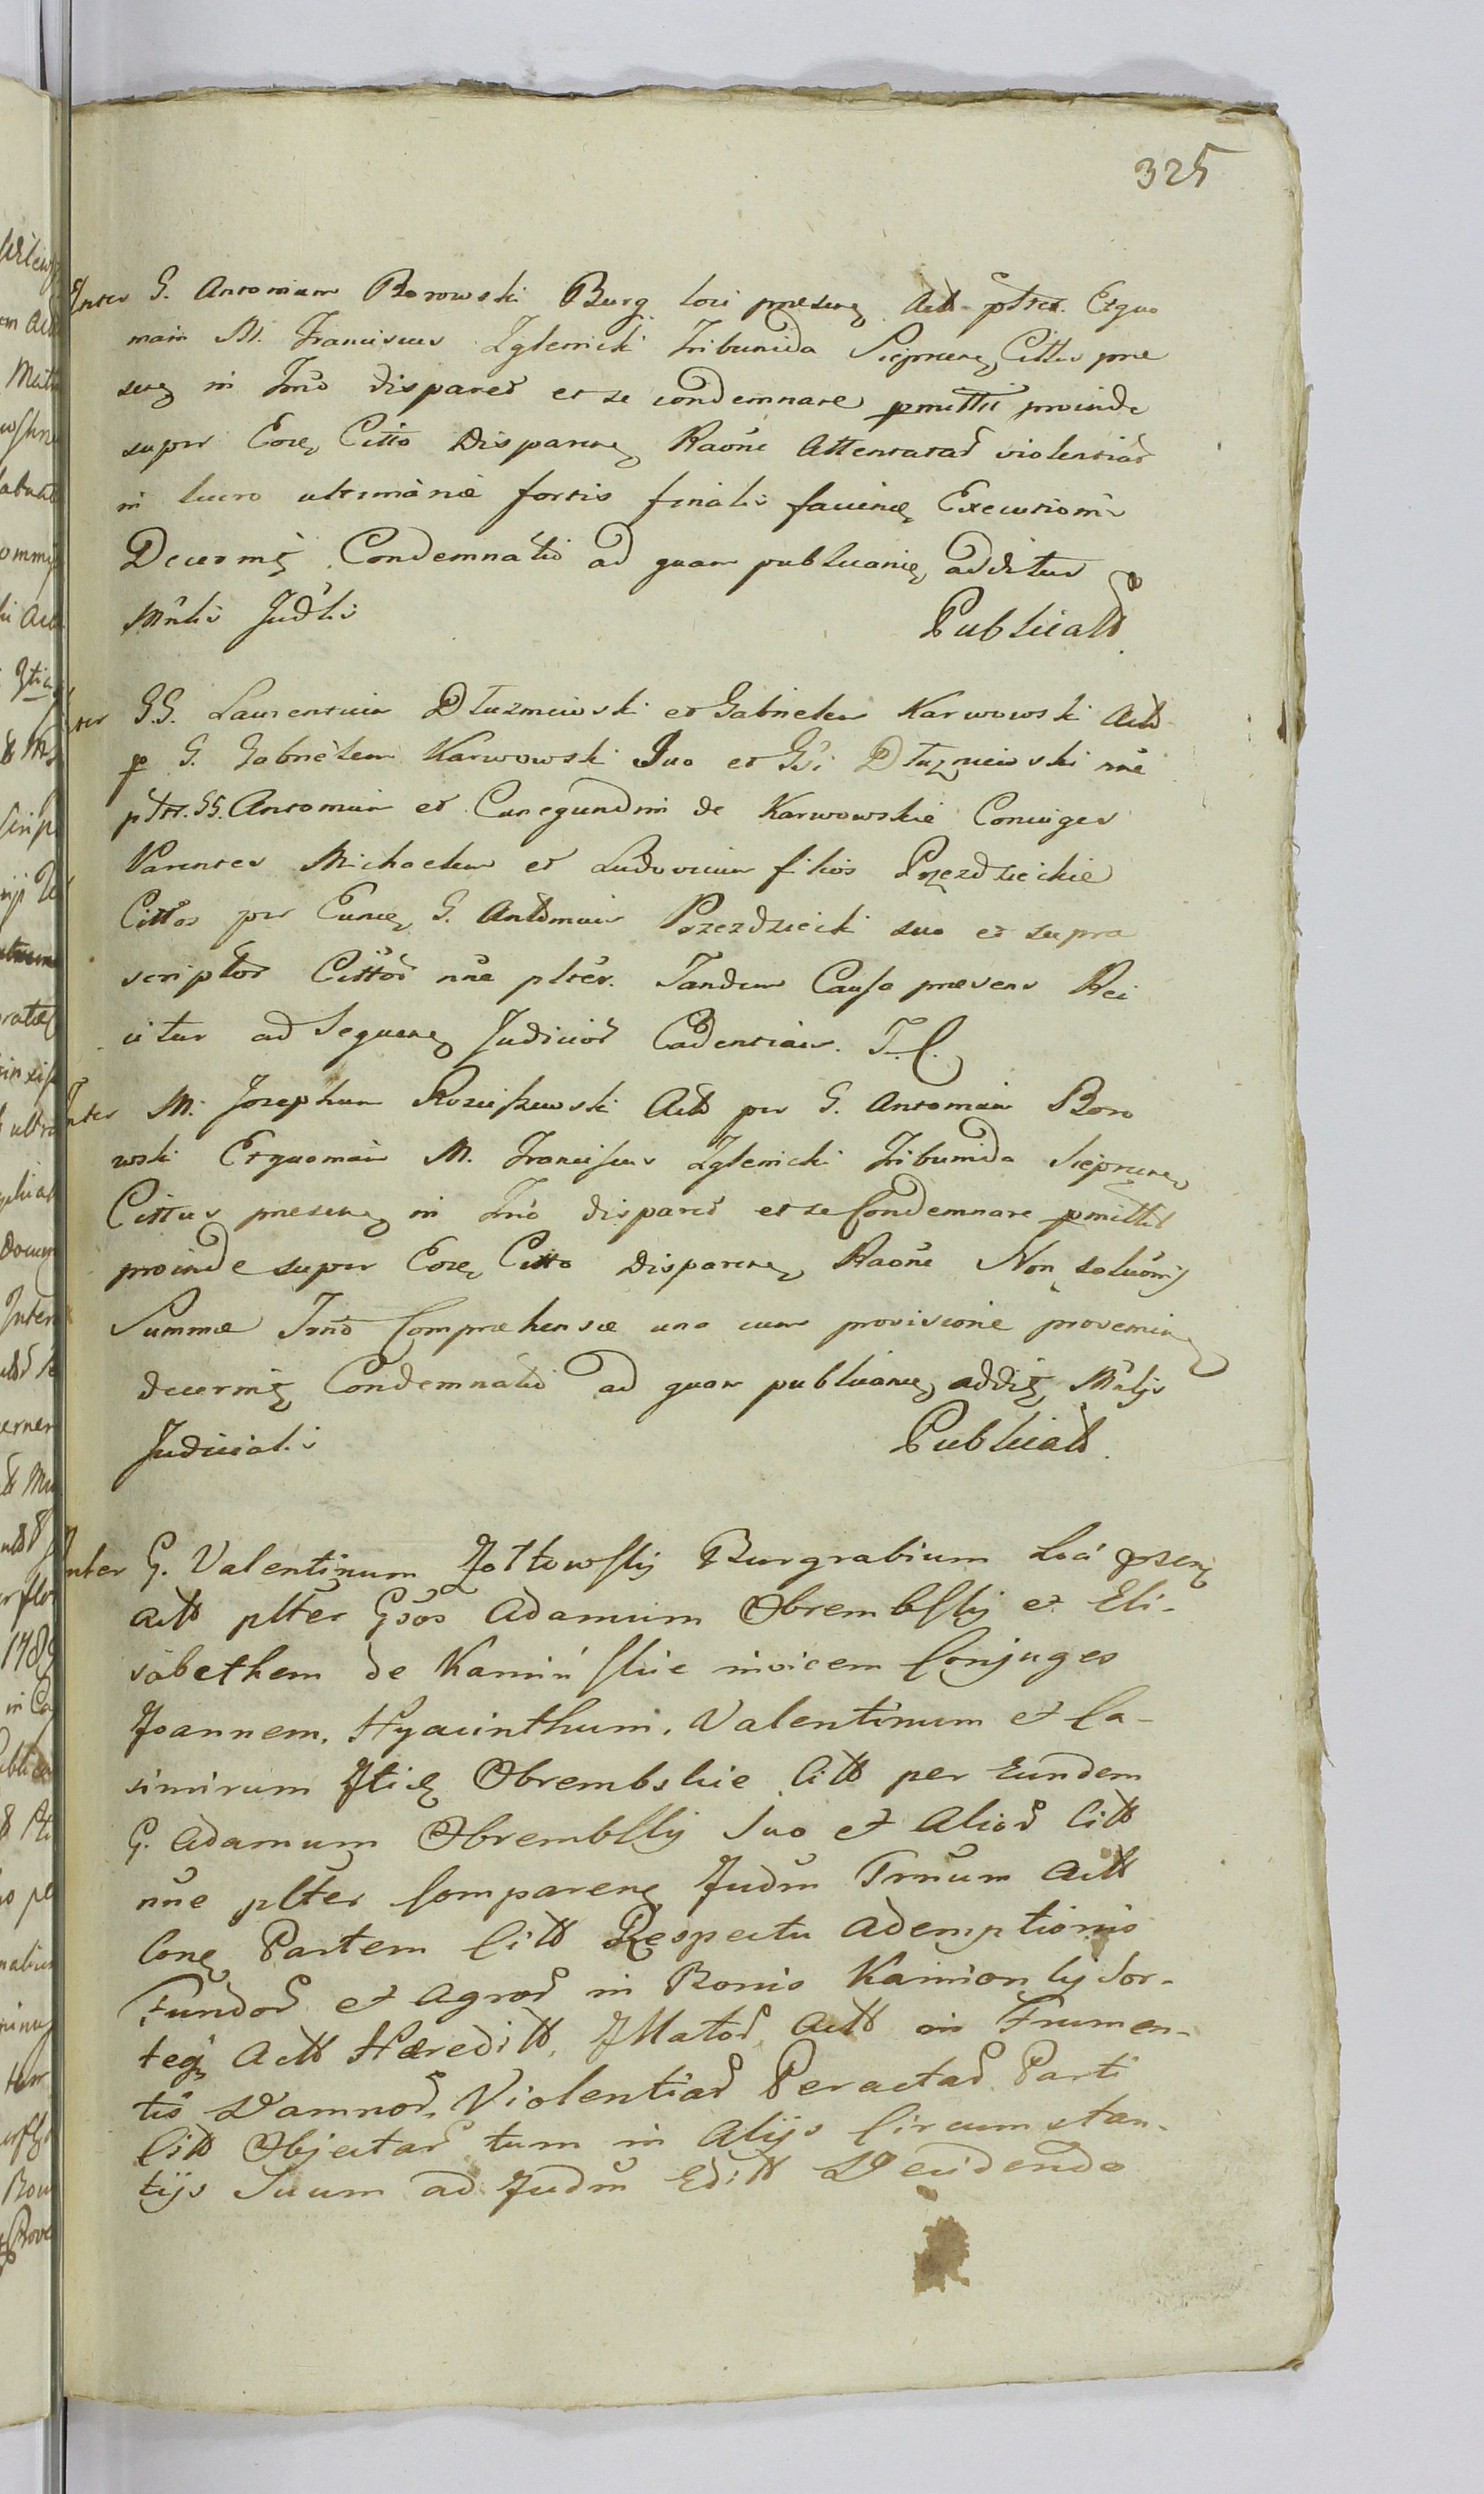 325
Inter G. Antonium Borowski Burg. loci presene Actt pltret. Exquo
niam M. Franciscus Zglenicki Tribunida Sieprcene Cittus pre
sene in Tnno disparet et se condemnare pmittit proinde
super Eore Citto Disparene Raone Attentatar violentiar
in lucro ultimanie fortis finalis faciene Executionis
Decernit Condemnatio ad quam publicanie additur
Mnlis Judlis Publicatt.
Inter GG. Laurentium Dłuzniewski et Gabrielem Karwowski Actt
p G. Gabrielem Karwowski Suo et Gsi Dłuzniewski nne
pltr. GG. Antonium et Cunegundim de Karwowskie Coniuges
Parentes Michaelem et Ludovicum filios Przezdzieckie
Cittos per Eunde G. Antonium Przezdziecki suo et supra
scriptor Cittor nne plter. Tandem Causa presens Rei
citur ad Seguene Judicior Cadentiam. T. C.
Inter M. Josephum Rosciszewski Actt per G. Antonium Boro
wski Exquoniam M. Franciscus Zglenicki Tribunida Sieprcene
Cittus presene in Tnno disparet et se Condemnare pmittit
proinde super Eore Citto Disparene Raone Non solutionis
Summæ Tnno Compræhensæ una cum provisione provenien
decernit Condemnatio ad quam publicanie addit Mnlis
Judicialis Publicatt.
Inter G. Valentinum Zołtowsky Burgrabium Loci prsen
Actt plter Gsos Adamum Obrembsky et Eli-
sabethem de Kamińskie invicem Conjuges
Joannem, Hyacinthum, Valentinum et Ca-
simirum Obrembskie Citt per Eundem
G. Adamum Obrembsky Suo et Alior Citt
nne plter Comparene Judm Trnum Actt
Cone Partem Citt Respectu Ademptionis
Fundor et Agror in Bonis Kamionky Sor-
teq Actt Hæreditt, Illator Actt in Frumen-
tis Damnor, Violentiar Peractar Parti
Citt Objectar tum in Alijs Circumstan-
tijs Suum ad Judm Editt Decidendo